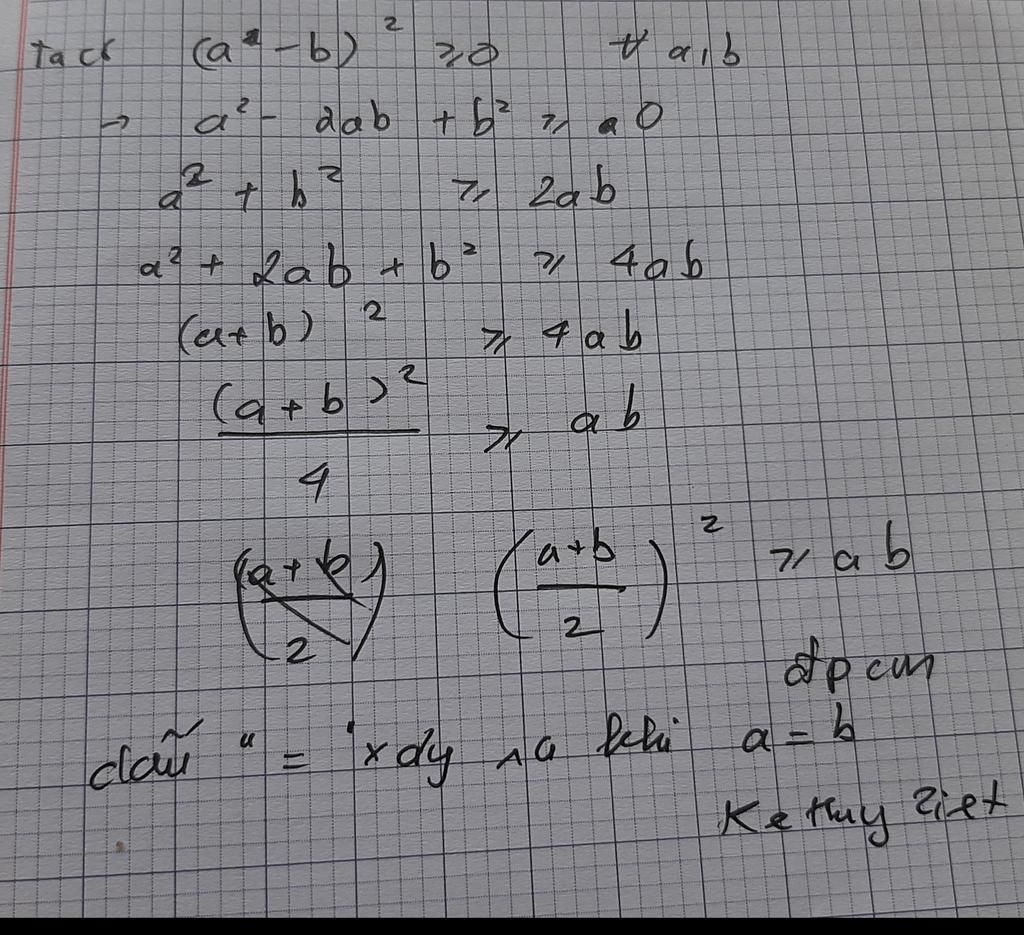 Ta có (a - b)² ≥ 0 ∀ a, b
→ a² - 2ab + b² ≥ 0
a² + b² ≥ 2ab
a² + 2ab + b² ≥ 4ab
(a+b)² ≥ 4ab
(a+b)²/4 ≥ ab
((a+b)/2)² ≥ ab
đpcm
dấu "=" xảy ra khi a = b